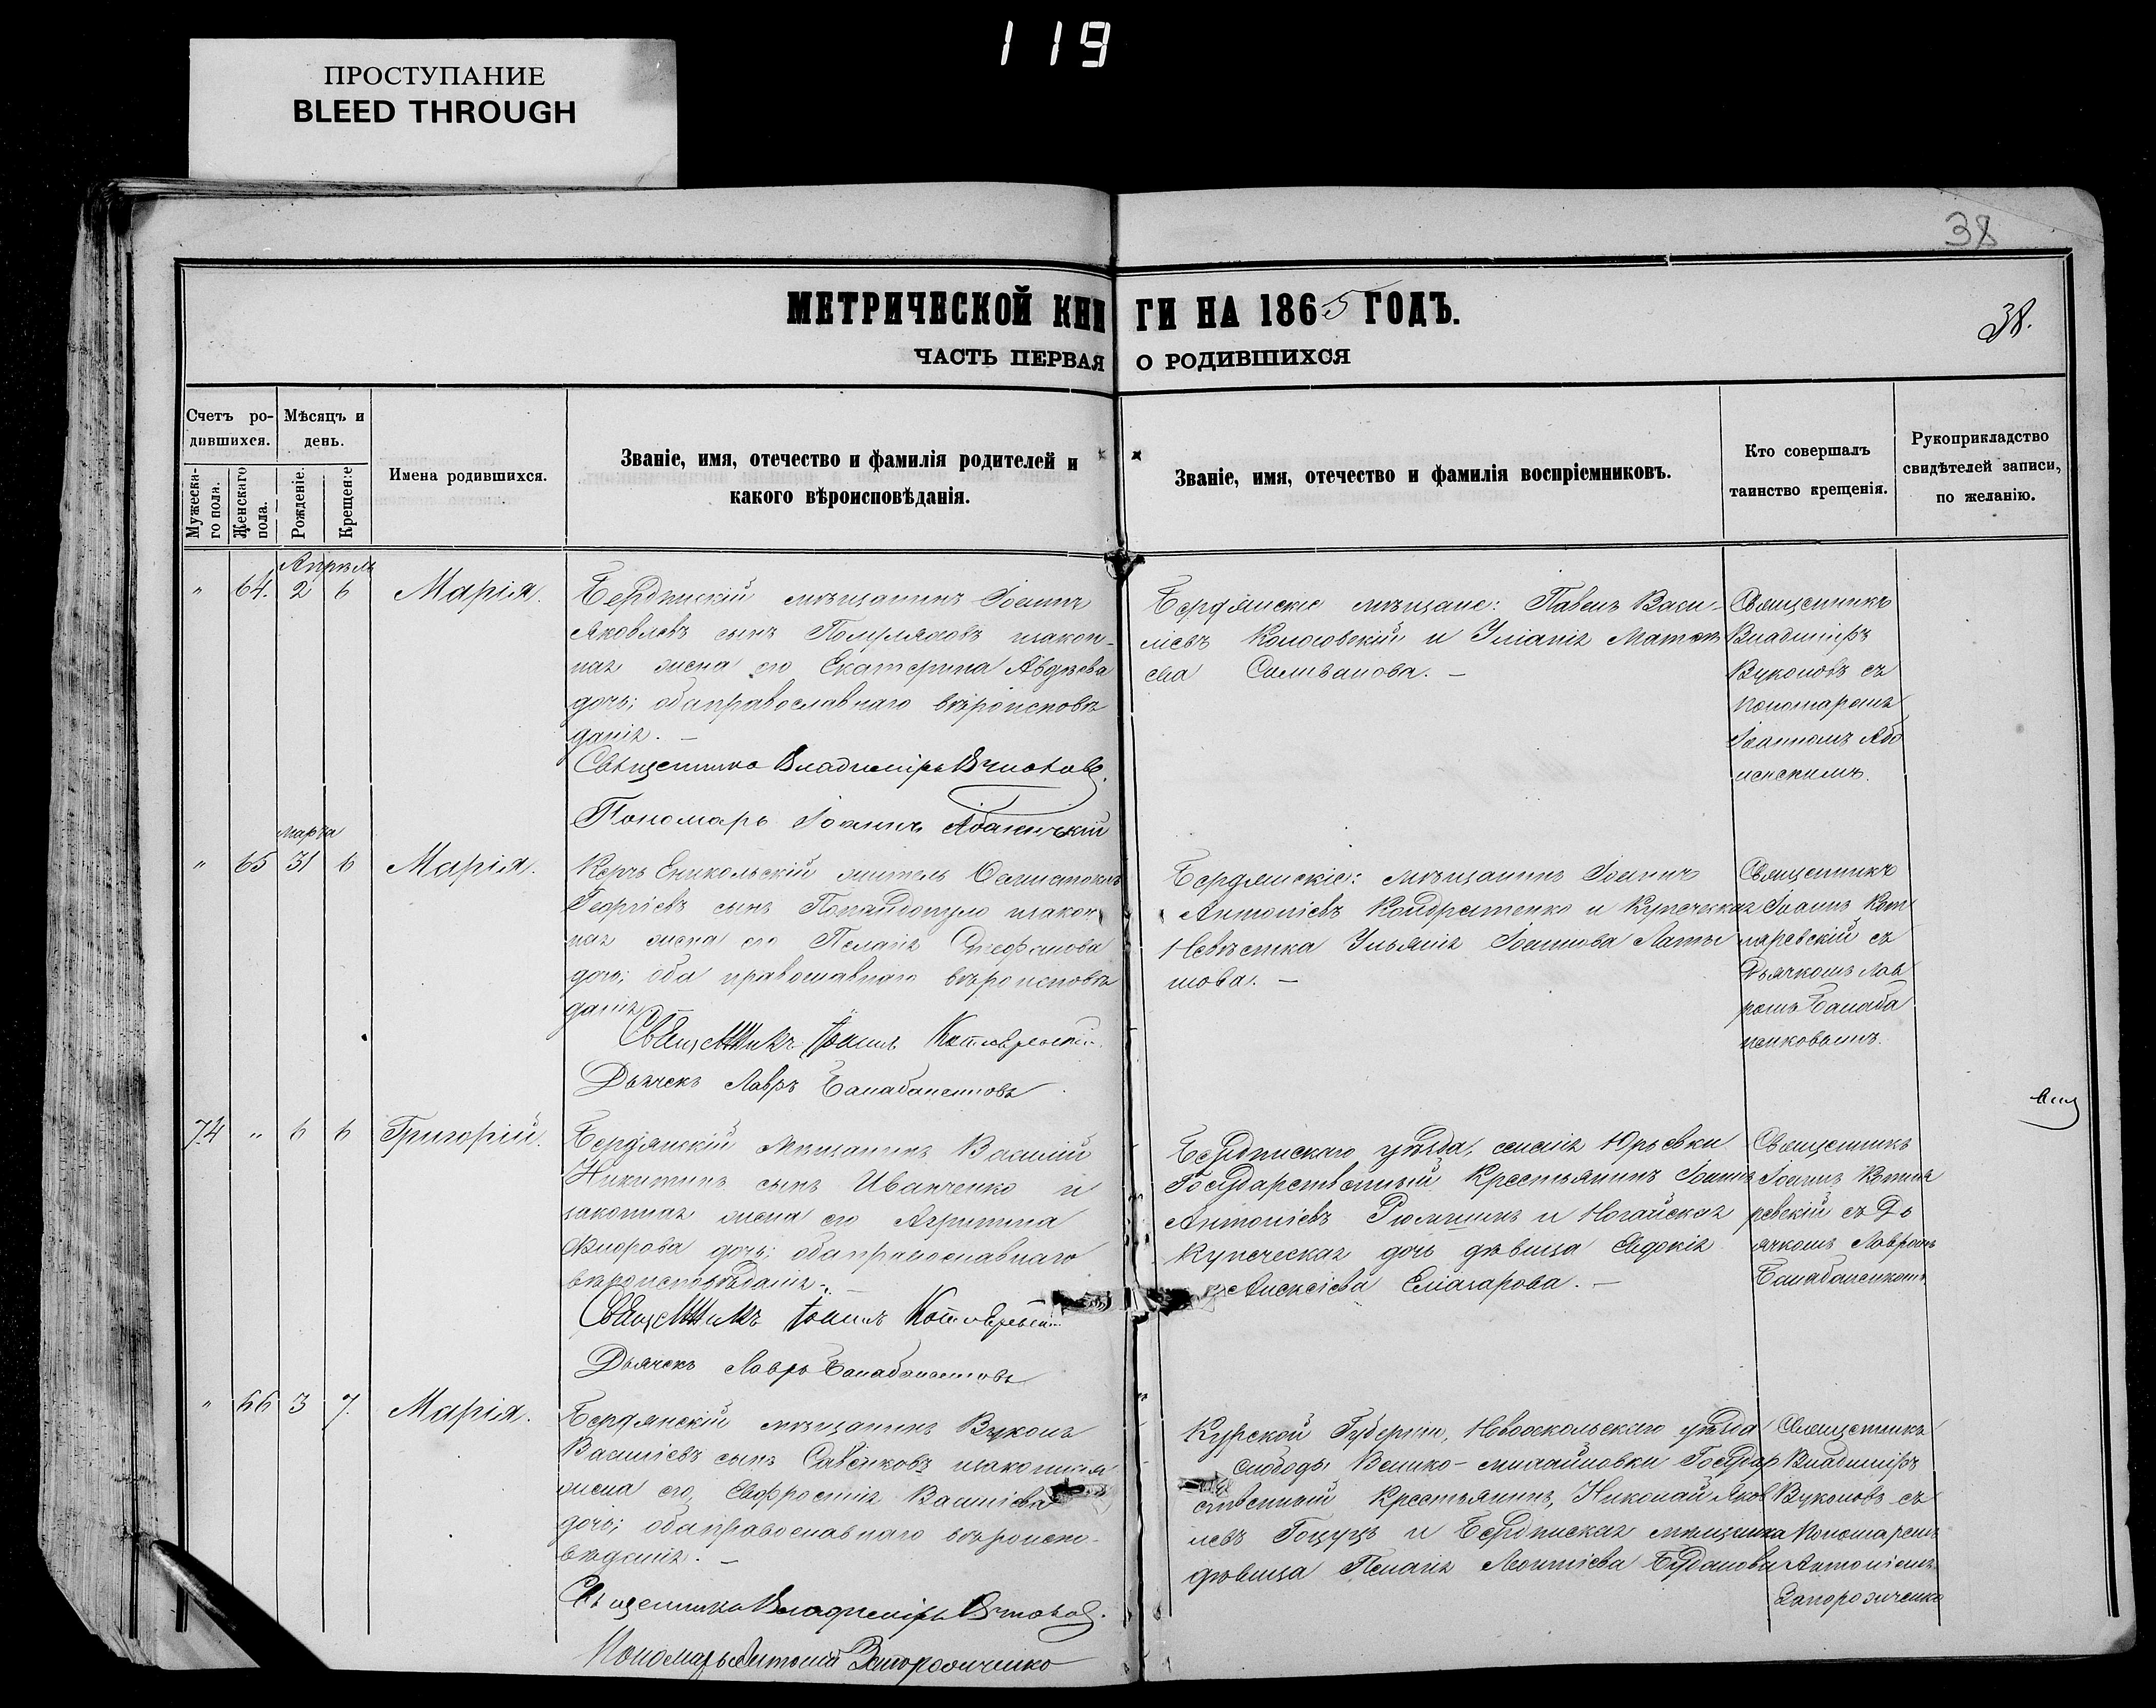 119
ПРОСТУПАНИЕ
BLEED THROUGH
38
МЕТРИЧЕСКОЙ КНИГИ НА 1865 ГОДЪ.
38.
ЧАСТЬ ПЕРВАЯ О РОДИВШИХСЯ
Счетъ родившихся.
Мужескаго пола.
Женскаго пола.
Мѣсяцъ и день.
Рожденіе.
Крещеніе
Имена родившихся.
Званіе, имя, отечество и фамилія родителей и
какого вѣроисповѣданія.
Званіе, имя, отечество и фамилія воспріемниковъ.
Кто совершалъ
таинство крещенія.
Рукоприкладство
свидѣтелей записи,
по желанію.
Апрѣль
" 64. 2 6 Марія.
Бердянскій мѣщанинъ Іоаннъ
Яковлевъ сынъ Полуляховъ и закон-
ная жена его Екатерина Авдѣева
дочь; оба православнаго вѣроисповѣ
данія. –
Священникъ Владиміръ Вуколовъ
Пономарь Іоаннъ
Бердянскіе мѣщане: Павелъ Васи-
ліевъ и Уліанія
ева Селиванова. –
Священникъ
Владиміръ
Вуколовъ съ
пономаремъ
Іоанномъ
Марта
" 65 31 6 Марія.
Керчь Еникольскій житель
Георгіевъ сынъ Попандопуло и закон
ная жена его Пелагія Стефанова
дочь; оба православнаго вѣроисповѣ
данія
Священникъ Іоаннъ Котляревскій
Дьячекъ Лавръ Балабаненковъ
Бердянскіе: мѣщанинъ Іоаннъ
Антоніевъ Кондратенко и Купеческая
Невѣстка Ульянія Іоаннова
Священникъ
Іоаннъ Кот
ляревскій съ
Дьячкомъ Лав
ромъ Балаба
ненковымъ.
74 " 6 6 Григорій.
Бердянскій мѣщанинъ Василій
Никитинъ сынъ Иванченко и
законная жена его Агрипина
дочь; оба православнаго
вѣроисповѣданія. –
Священникъ Іоаннъ Котляревскій
Дьячекъ Лавръ Балабаненковъ
Бердянскаго уѣзда, селенія Юрьевки
Государственный Крестьянинъ Іоаннъ
Антоніевъ и Ногайская
Купеческая дочь дѣвица Евдокія
Алексіева Елагарова. –
Священникъ
Іоаннъ Котля
ревскій съ Дь
ячкомъ Лавромъ
" 66 3 7. Марія.
Бердянскій мѣщанинъ Вуколъ
Василіевъ сынъ и законная
жена его Евфросинія Василіева
дочь; оба православнаго вѣроиспо-
вѣданія. –
Священникъ Владиміръ Вуколовъ.
Пономарь Антоній Запорожченко
Курской Губерніи, Новооскольскаго уѣзда
Слободы Велико-михайловки Государ
ственный Крестьянинъ, Николай Яков
левъ и Бердянская мѣщанка
дѣвица Пелагія Леонтіева
Священникъ
Владиміръ
Вуколовъ съ
Пономаремъ
Антоніемъ
Запорожченко